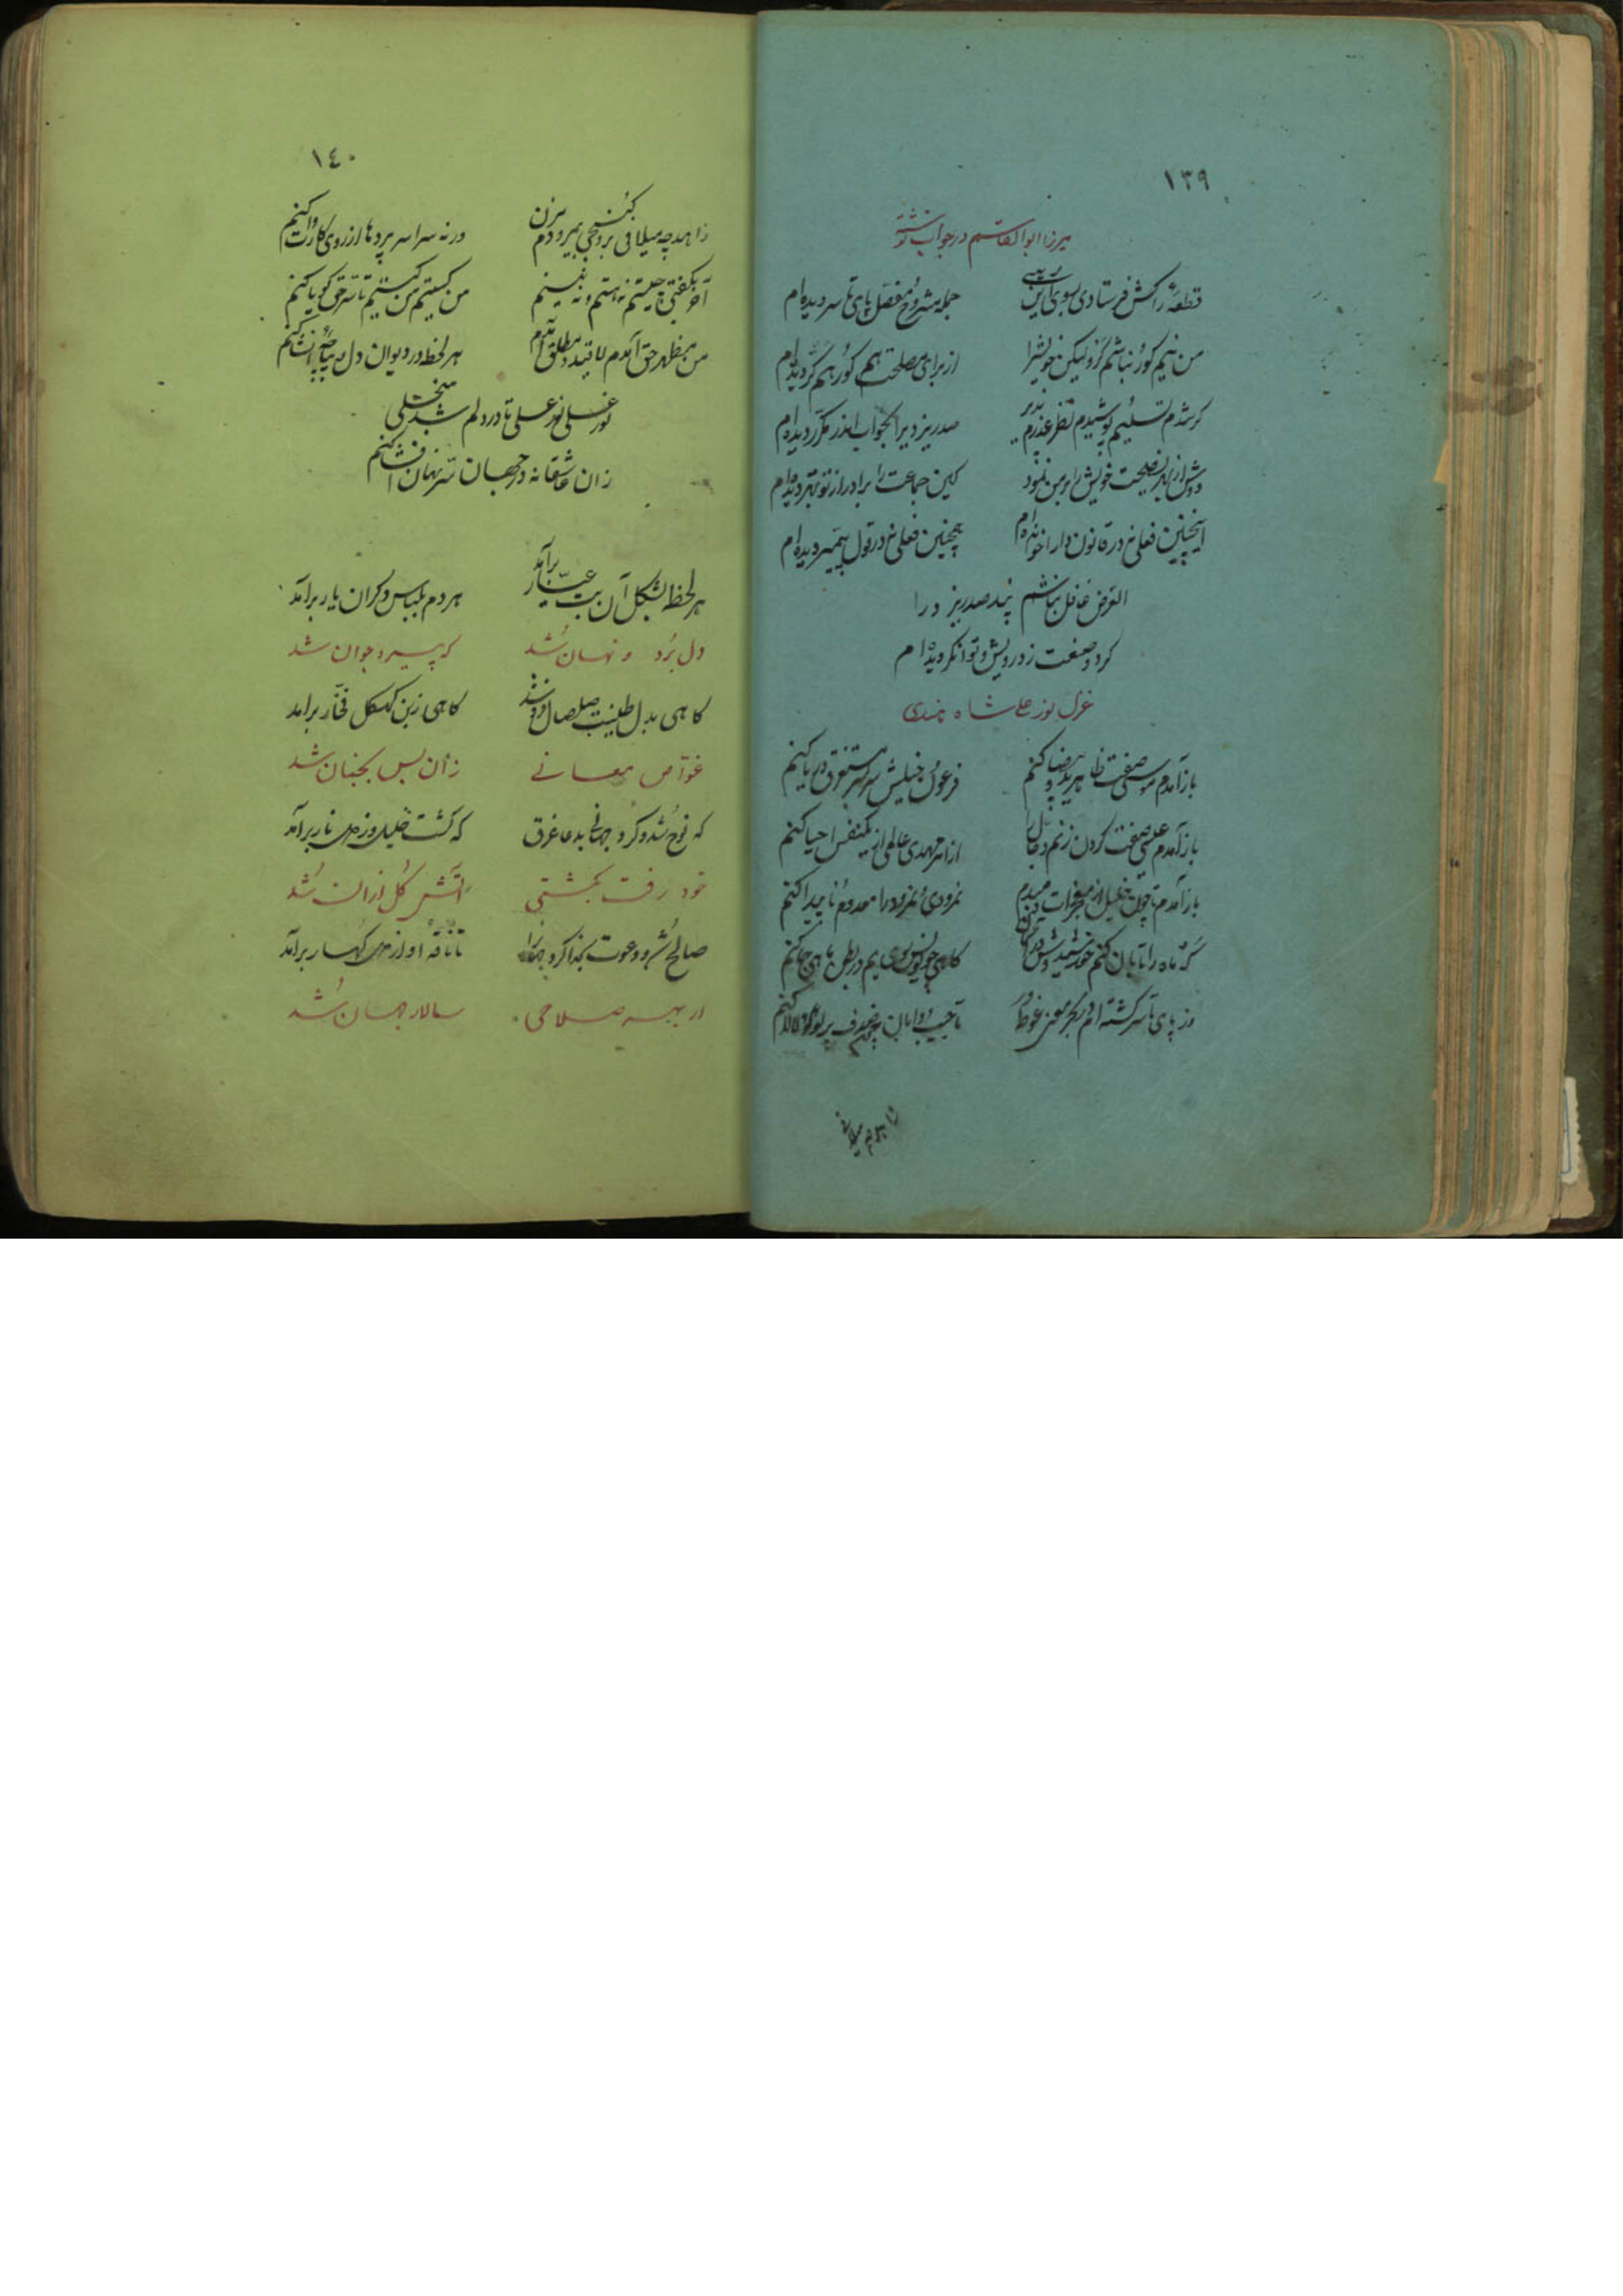 ١٣٩
میرزا ابوالقاسم در جواب نوشته
قطعهٔ را کش فرستادی بسوی این
جمله مشروح مفصل پای تا سر دیده‌ام
من نیم کور و نباشم کر ولیکن خویش را
از برای مصلحت هم کور هم کر دیده‌ام
کر شدم تسلیم پوشیدم نظر
دیده‌ام
دوش از بهر نصیحت خویش را بر من نمود
کین جماعت را برادر از تو بهتر دیده‌ام
اینچنین فعلی نه در قانون دارا خوانده‌ام
همچنین فعلی نه در قول پیمبر دیده‌ام
الغرض غافل نباشم پند
کرد وصفت ز درویش و توانگر دیده‌ام
غزل نور علی شاه هندی
باز آمدم موسی صفت ظاهر ید بیضا کنم
فرعون و خیلش سر بسر مستغرق دریا کنم
باز آمدم عیسی صفت گردن زنم دجال را
از امر مهدی عالمی از یکنفس احیا کنم
باز آمدم تا چون خلیل از معجزات
نمرودی و نمرود را معدوم و ناپیدا کنم
گه ماه را تابان کنم خورشید وش
گاهی چو یونس در یم در بطن ماهی جا کنم
وز پای تا سر گشته‌ام در بحر معنی غوطه‌ور
تا جیب و دامان چون صدف پر لؤلؤ لالا کنم
١٤٠
زاهد چه میلافی برو کنجی
ورنه سراسر پرده‌ها از روی کارت وا کنم
آخر نگفتی چیستم نه هستم و نه نیستم
من کیستم من کیستم تا سر حق گویا کنم
من مظهر حق آمدم لاقید و مطلق آمدم
هر لحظه در دیوان دل انشا کنم
نور علی نور علی تا در دلم شد منجلی
زان عاشقانه در جهان سر نهان افشا کنم
هر لحظه بشکل آن بت عیار برآمد
هر دم بلباس دگران یار برآمد
دل برد و نهان شد
گه پیر و جوان شد
گاهی بدل طینت صلصال فرو شد
گاهی ز بن کهگل فخار برآمد
غواص معانی
زان پس بجنان شد
که نوح شد و کرد جهانی بدعا غرق
که گشت خلیل و ز دل نار برآمد
خود رفت بکشتی
آتش گل از ان شد
صالح شد و دعوت بخدا کرد
تا ناقهٔ او از دل کهسار برآمد
از بهر صلاحی
سالار جهان شد